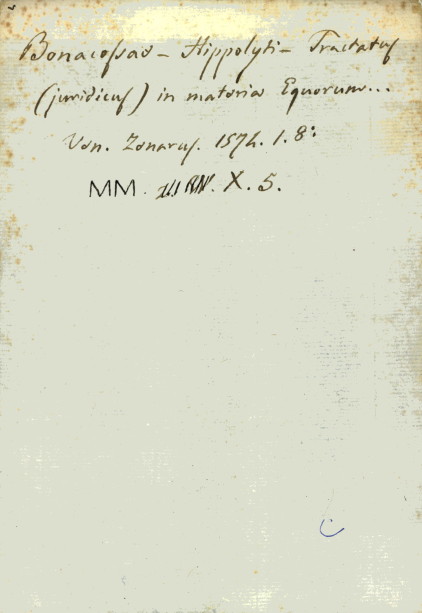 Bonacossae - Hippolyti - Tractatus
(juridicus) in materia Equorum...
Ven. Zenarus. 1574. 1. 8:
MM. X. 5.